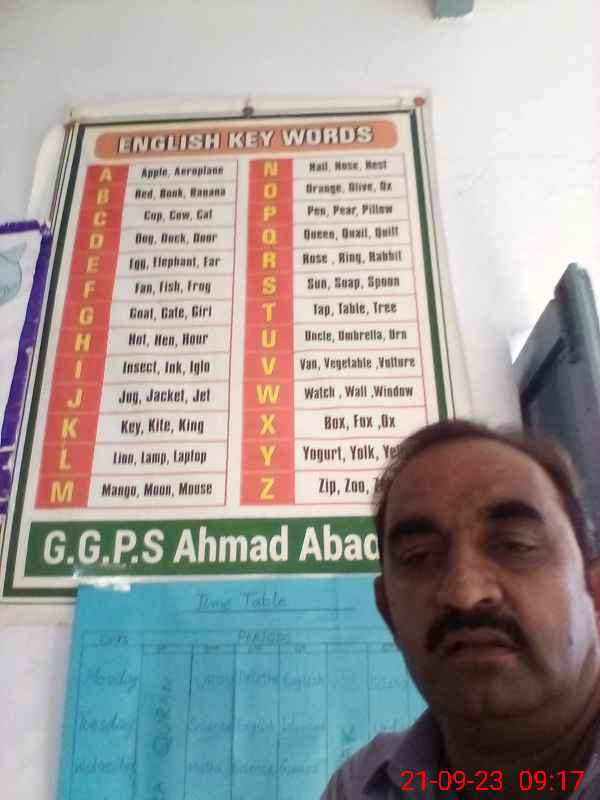 ENGLISH KEY WORDS
A Apple, Aeroplane
B Bed, Book, Banana
C Cup, Cow, Cat
D Dog, Duck, Door
E Egg, Elephant, Ear
F Fan, Fish, Frog
G Goat, Gate, Girl
H Hot, Hen, Hour
I Insect, Ink, Iglo
J Jug, Jacket, Jet
K Key, Kite, King
L Lion, Lamp, Laptop
M Mango, Moon, Mouse
N Nail, Nose, Nest
O Orange, Olive, Ox
P Pen, Pear, Pillow
Q Queen, Quail, Quilt
R Rose , Ring, Rabbit
S Sun, Soap, Spoon
T Tap, Table, Tree
U Uncle, Umbrella, Urn
V Van, Vegetable ,Vulture
W Watch , Wall ,Window
X Box, Fox ,Ox
Y Yogurt, Yolk,
Z Zip, Zoo,
G.G.P.S Ahmad Abad
Time Table
DAYS PERIODS
Monday Urdu Maths English
Tuesday QURAN Science English
Maths Science
21-09-23 09:17